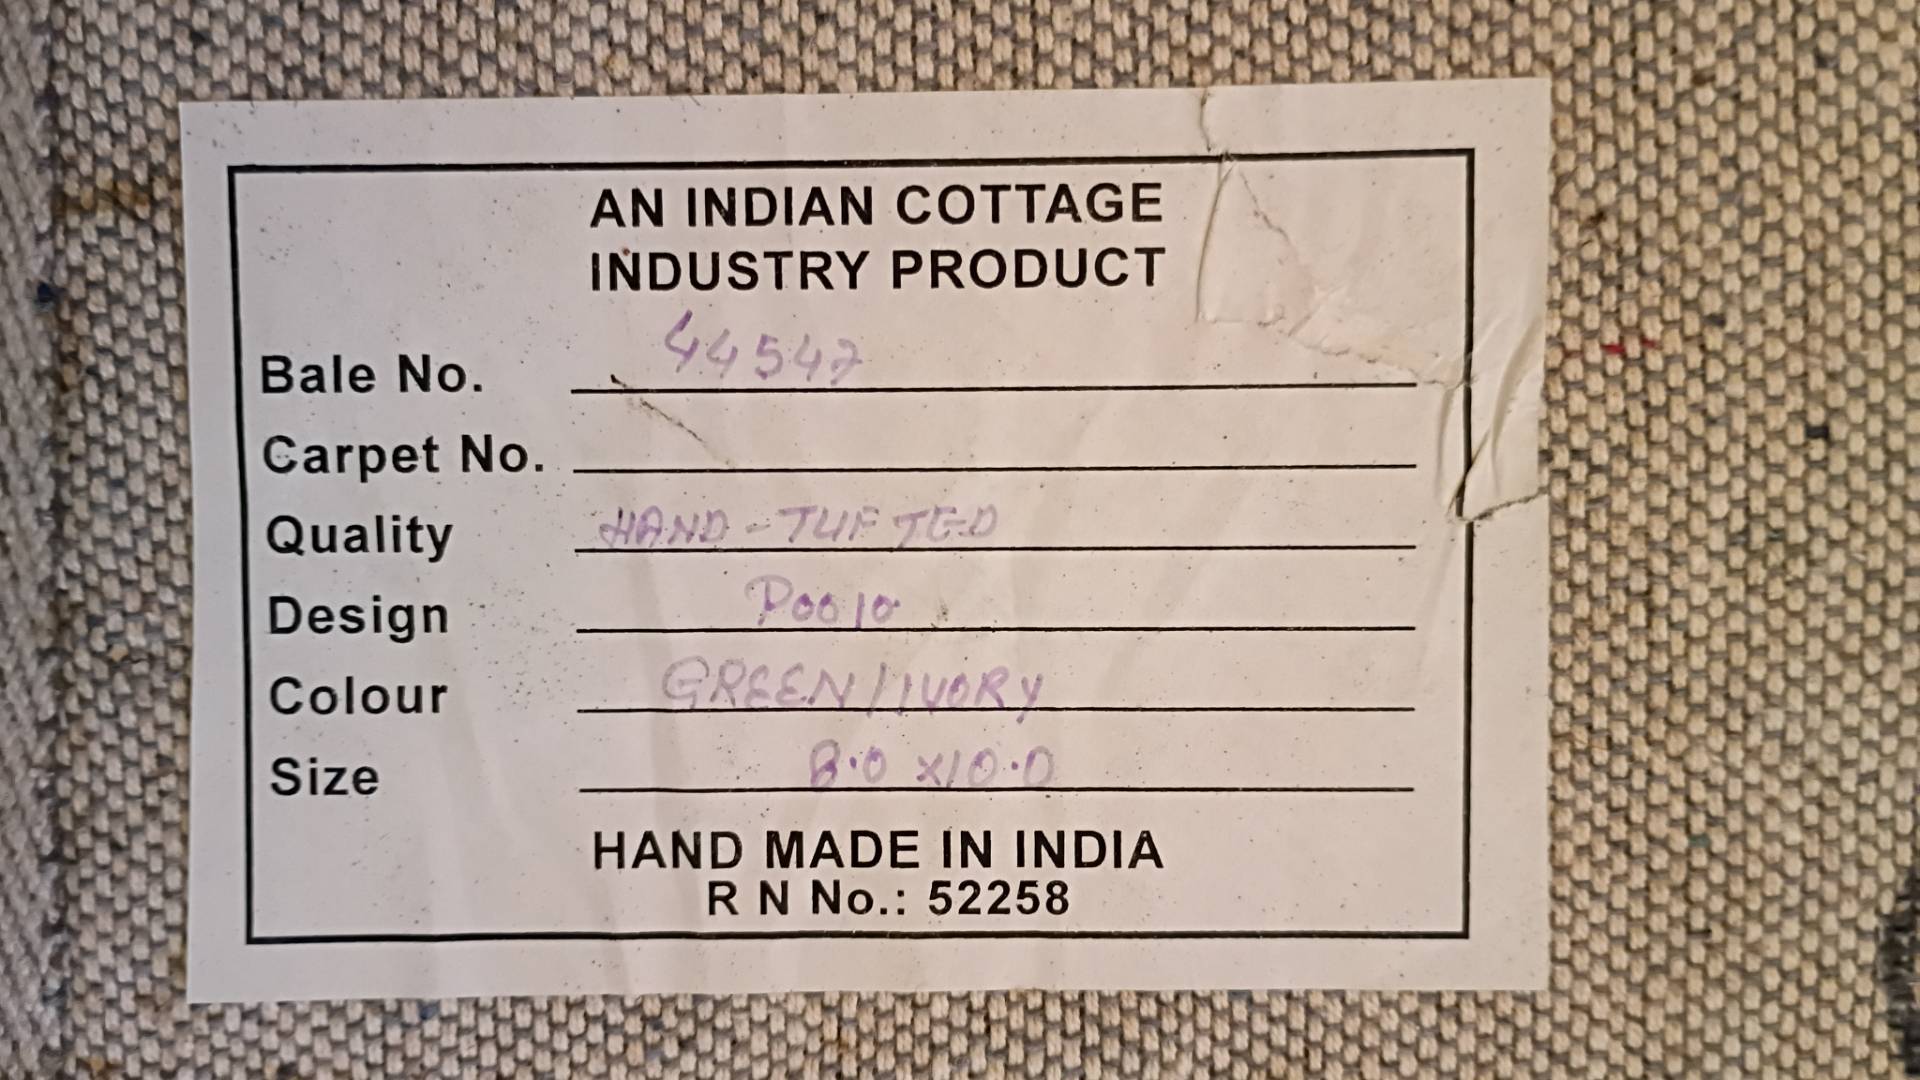 AN INDIAN COTTAGE
INDUSTRY PRODUCT
Bale No. 44547
Carpet No.
Quality HAND-TUFTED
Design Poo10
Colour GREEN/IVORY
Size 8.0 x10.0
HAND MADE IN INDIA
R N No.: 52258